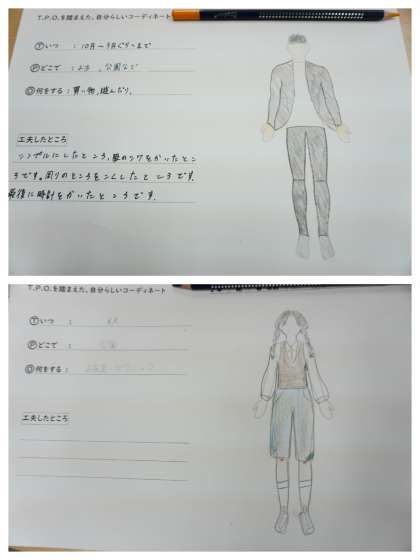 T.P.O.を踏まえた、自分らしいコーディネート
Ⓣいつ ： 10月〜3月ぐらいまで
Ⓟどこで ： 公園など
Ⓞ何をする：買い物、遊んだり、
工夫したところ
シンプルにしたところ、服のシワをかいたとこ
ろです。周りのところをこくしたところです。
最後に時計をかいたところです。
T.P.O.を踏まえた、自分らしいコーディネート
Ⓣいつ ：
Ⓟどこで ：
Ⓞ何をする：
工夫したところ